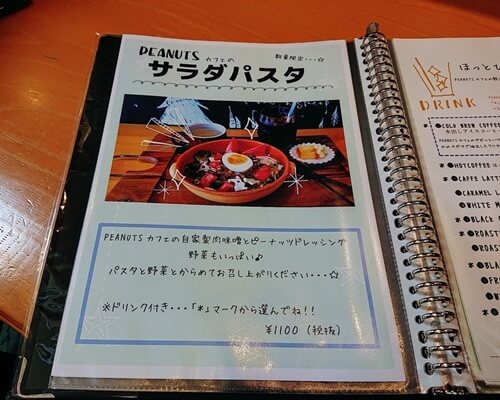 PEANUTS カフェの
数量限定・・・☆
サラダパスタ
PEANUTS カフェの自家製肉味噌とピーナッツドレッシング
野菜もいっぱい♪
パスタと野菜とからめてお召し上がりください・・・☆
※ドリンク付き・・・「*」マークから選んでね!!
¥1100 (税抜)
ほっとひ
PEANUTS カフェの
DRINK
*●COLD BREW COFFEE
水出しアイスコー
*●HOTCOFFEE
*●CAFFE LATT
●CARAMEL
●WHITE M
*●BLACK
*●ROAST
●ROAST
*●BLA
●FR